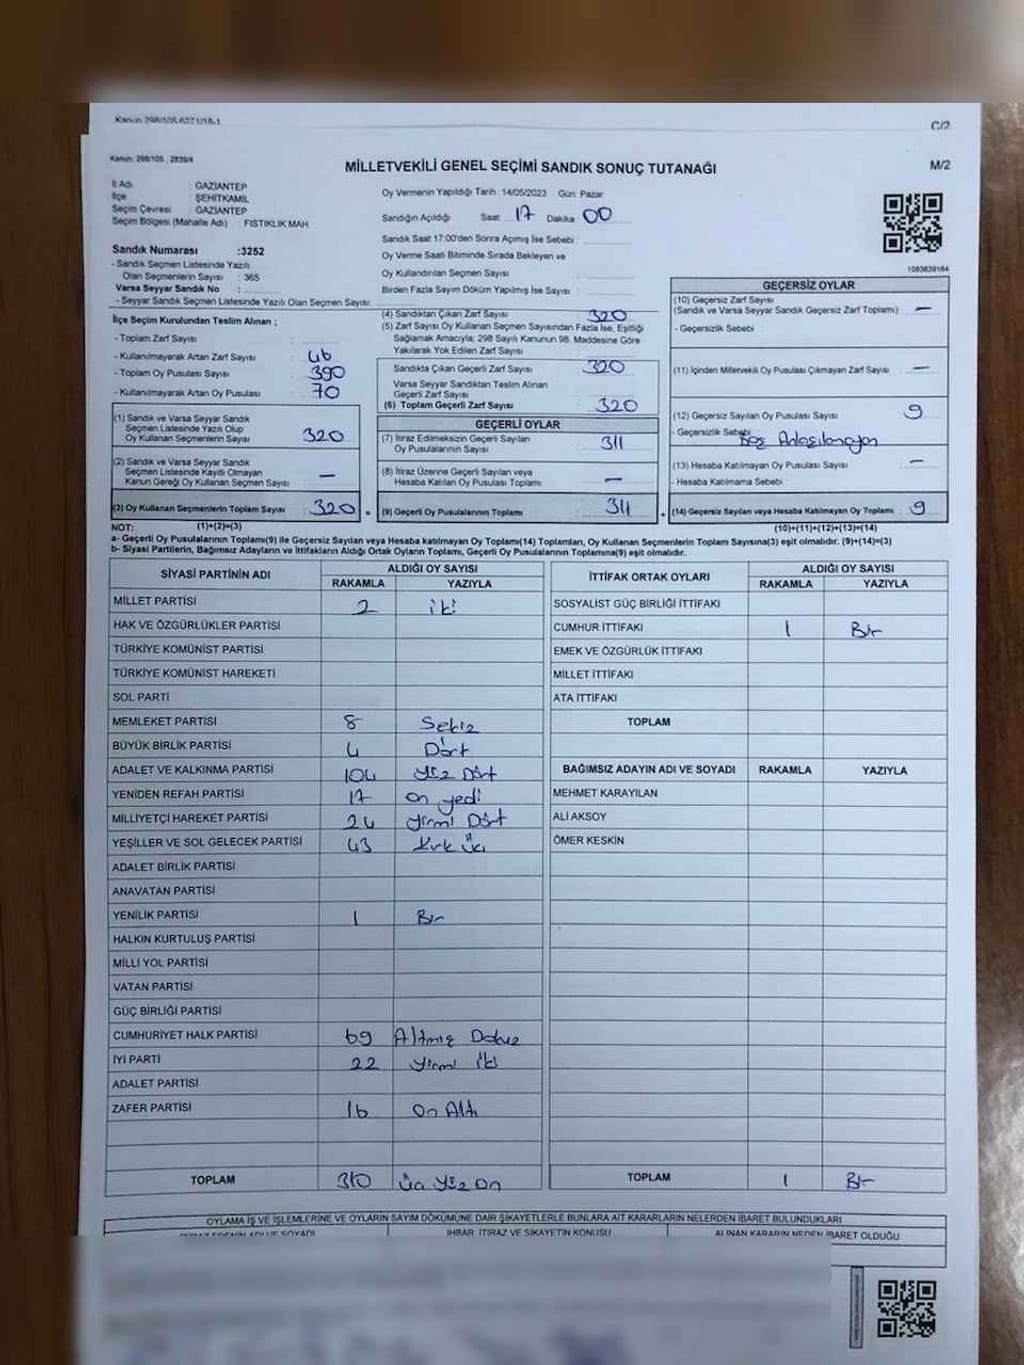 Kanun 298/105,6271/18-1
C/2
Kanun: 298/105 , 2839/4
MİLLETVEKİLİ GENEL SEÇİMİ SANDIK SONUÇ TUTANAĞI
M/2
İl Adı : GAZİANTEP
İlçe : ŞEHİTKAMİL
Seçim Çevresi : GAZİANTEP
Seçim Bölgesi (Mahalle Adı) : FISTIKLIK MAH
Oy Vermenin Yapıldığı Tarih :14/05/2023 Gün: Pazar
Sandığın Açıldığı Saat 17 Dakika 00
Sandık Saat 17:00'den Sonra Açımış İse Sebebi :
Oy Verme Saati Bitiminde Sırada Bekleyen ve
Oy Kullandırılan Seçmen Sayısı :
Birden Fazla Sayım Döküm Yapılmış İse Sayısı :
Sandık Numarası :3252
- Sandık Seçmen Listesinde Yazılı
Olan Seçmenlerin Sayısı : 365
Varsa Seyyar Sandık No :
- Seyyar Sandık Seçmen Listesinde Yazılı Olan Seçmen Sayısı:
1083639164
İlçe Seçim Kurulundan Teslim Alınan ;
- Toplam Zarf Sayısı :
- Kullanılmayarak Artan Zarf Sayısı : 46
- Toplam Oy Pusulası Sayısı : 390
- Kullanılmayarak Artan Oy Pusulası : 70
(1) Sandık ve Varsa Seyyar Sandık
Seçmen Listesinde Yazılı Olup
Oy Kullanan Seçmenlerin Sayısı 320
(2) Sandık ve Varsa Seyyar Sandık
Seçmen Listesinde Kayıtlı Olmayan
Kanun Gereği Oy Kullanan Seçmen Sayısı –
(3) Oy Kullanan Seçmenlerin Toplam Sayısı 320 =
(4) Sandıktan Çıkan Zarf Sayısı 320
(5) Zarf Sayısı Oy Kullanan Seçmen Sayısından Fazla İse, Eşitliği
Sağlamak Amacıyla; 298 Sayılı Kanunun 98. Maddesine Göre
Yakılarak Yok Edilen Zarf Sayısı :
Sandıkta Çıkan Geçerli Zarf Sayısı 320
Varsa Seyyar Sandıktan Teslim Alınan
Geçerli Zarf Sayısı
(6) Toplam Geçerli Zarf Sayısı 320
GEÇERLİ OYLAR
(7) İtiraz Edilmeksizin Geçerli Sayılan
Oy Pusulalarının Sayısı 311
(8) İtiraz Üzerine Geçerli Sayılan veya
Hesaba Katılan Oy Pusulası Toplamı –
(9) Geçerli Oy Pusulalarının Toplamı 311 +
GEÇERSİZ OYLAR
(10) Geçersiz Zarf Sayısı
(Sandık ve Varsa Seyyar Sandık Geçersiz Zarf Toplamı) –
- Geçersizlik Sebebi :
(11) İçinden Milletvekili Oy Pusulası Çıkmayan Zarf Sayısı –
(12) Geçersiz Sayılan Oy Pusulası Sayısı 9
- Geçersizlik Sebebi
(13) Hesaba Katılmayan Oy Pusulası Sayısı –
- Hesaba Katılmama Sebebi
(14) Geçersiz Sayılan veya Hesaba Katılmayan Oy Toplamı 9
NOT: (1)+(2)=(3) (10)+(11)+(12)+(13)=(14)
a- Geçerli Oy Pusulalarının Toplamı(9) ile Geçersiz Sayılan veya Hesaba katılmayan Oy Toplamı(14) Toplamları, Oy Kullanan Seçmenlerin Toplam Sayısına(3) eşit olmalıdır. (9)+(14)=(3)
b- Siyasi Partilerin, Bağımsız Adayların ve İttifakların Aldığı Ortak Oyların Toplamı, Geçerli Oy Pusulalarının Toplamına(9) eşit olmalıdır.
SİYASİ PARTİNİN ADI ALDIĞI OY SAYISI
RAKAMLA YAZIYLA
MİLLET PARTİSİ 2 iki
HAK VE ÖZGÜRLÜKLER PARTİSİ
TÜRKİYE KOMÜNİST PARTİSİ
TÜRKİYE KOMÜNİST HAREKETİ
SOL PARTİ
MEMLEKET PARTİSİ 8 Sekiz
BÜYÜK BİRLİK PARTİSİ 4 Dört
ADALET VE KALKINMA PARTİSİ 104 yüz Dört
YENİDEN REFAH PARTİSİ 17 on yedi
MİLLİYETÇİ HAREKET PARTİSİ 24 yirmi Dört
YEŞİLLER VE SOL GELECEK PARTİSİ 43 Kırk üç
ADALET BİRLİK PARTİSİ
ANAVATAN PARTİSİ
YENİLİK PARTİSİ 1 Bir
HALKIN KURTULUŞ PARTİSİ
MİLLİ YOL PARTİSİ
VATAN PARTİSİ
GÜÇ BİRLİĞİ PARTİSİ
CUMHURİYET HALK PARTİSİ 69 Altmış Dokuz
İYİ PARTİ 22 yirmi iki
ADALET PARTİSİ
ZAFER PARTİSİ 16 On Altı
TOPLAM 310 üç yüz on
İTTİFAK ORTAK OYLARI ALDIĞI OY SAYISI
RAKAMLA YAZIYLA
SOSYALİST GÜÇ BİRLİĞİ İTTİFAKI
CUMHUR İTTİFAKI 1 Bir
EMEK VE ÖZGÜRLÜK İTTİFAKI
MİLLET İTTİFAKI
ATA İTTİFAKI
TOPLAM
BAĞIMSIZ ADAYIN ADI VE SOYADI RAKAMLA YAZIYLA
MEHMET KARAYILAN
ALİ AKSOY
ÖMER KESKİN
TOPLAM 1 Bir
OYLAMA İŞ VE İŞLEMLERİNE VE OYLARIN SAYIM DÖKÜMÜNE DAİR ŞİKAYETLERLE BUNLARA AİT KARARLARIN NELERDEN İBARET BULUNDUKLARI
İHBAR, İTİRAZ VE ŞİKAYETİN KONUSU
ALINAN KARARIN NEDEN İBARET OLDUĞU